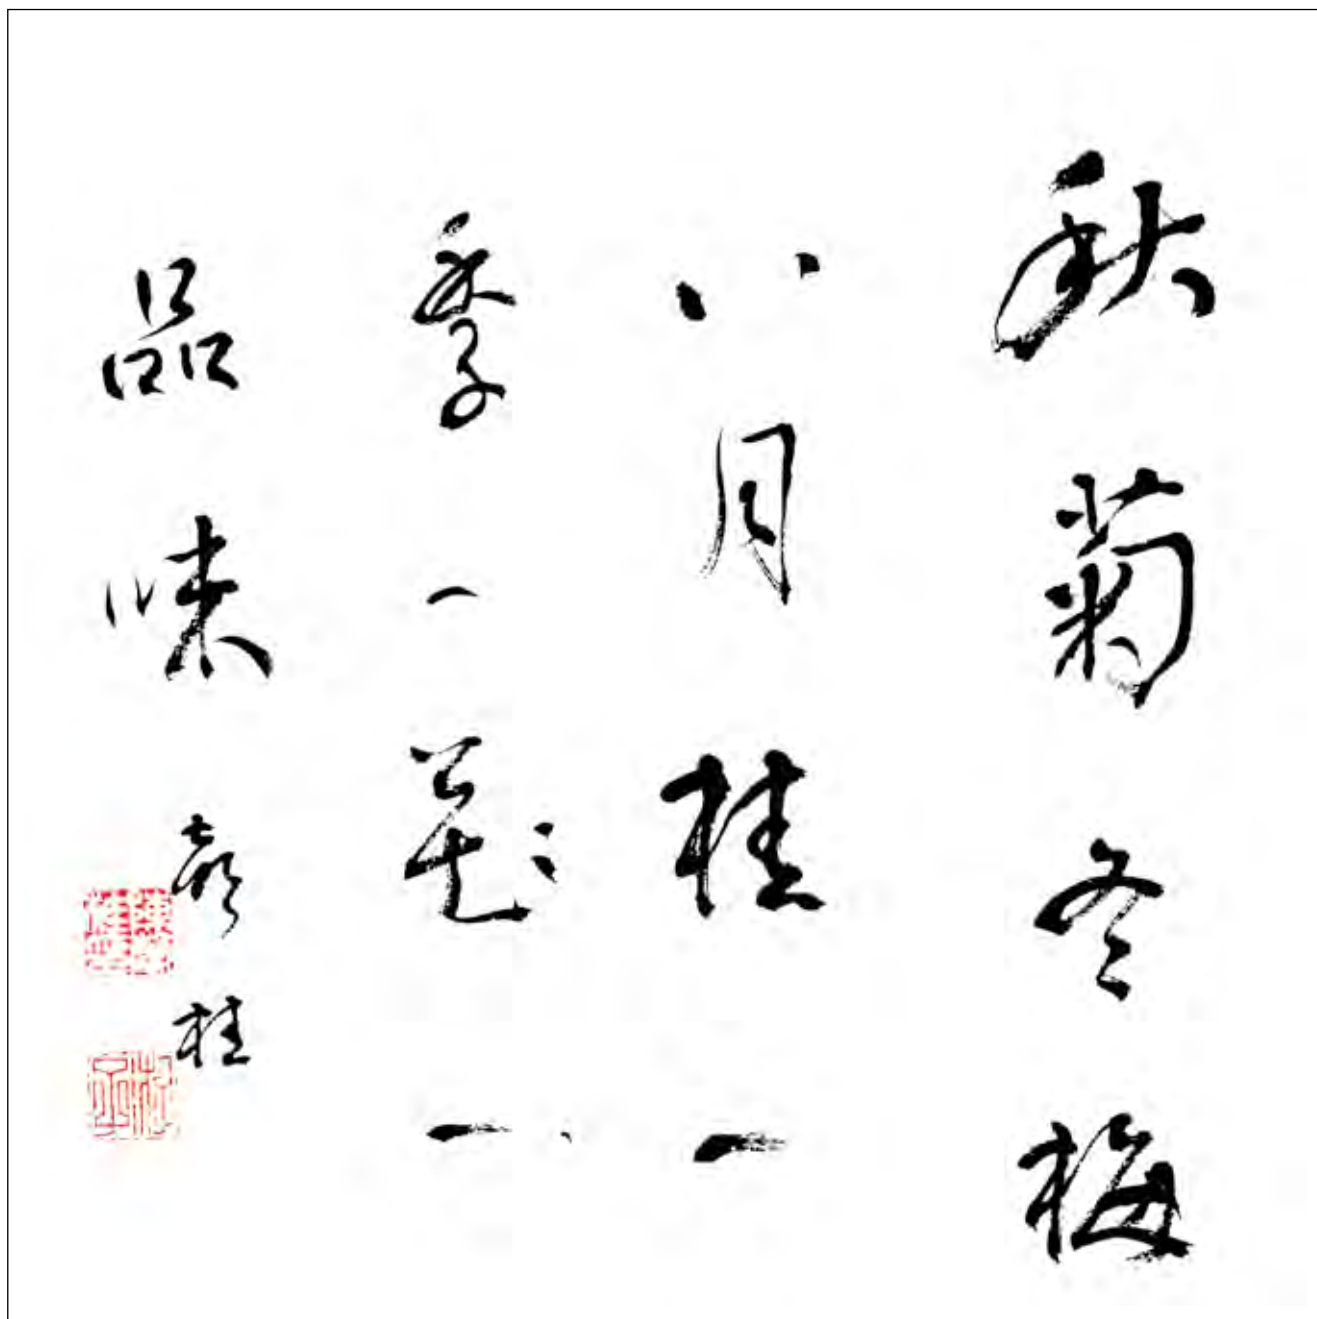 秋菊冬梅
八月桂一
季一花一
品味
桂